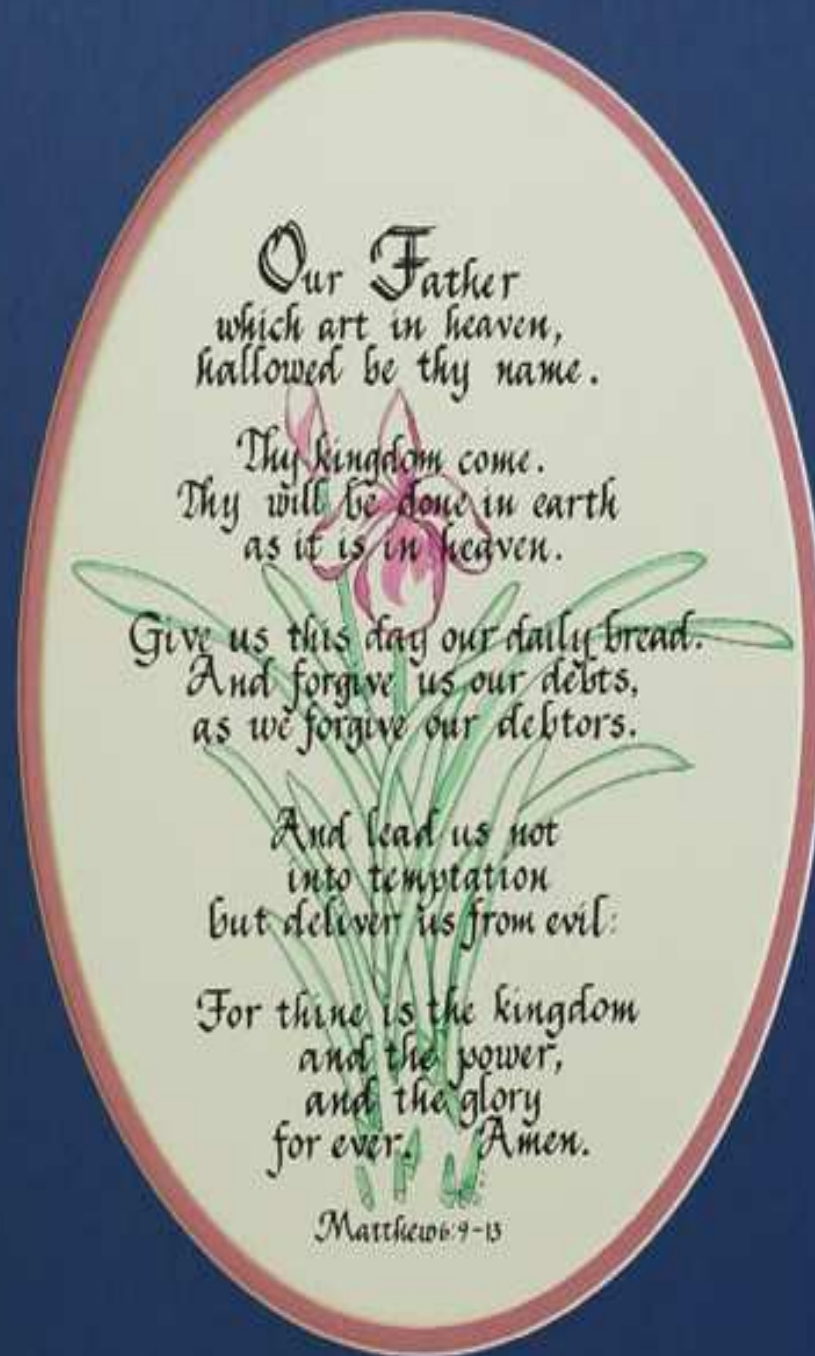 Our Father
which art in heaven,
hallowed be thy name.
Thy kingdom come.
Thy will be done in earth
as it is in heaven.
Give us this day our daily bread.
And forgive us our debts,
as we forgive our debtors.
And lead us not
into temptation
but deliver us from evil:
For thine is the kingdom
and the power,
and the glory
for ever. Amen.
Matthew 6:9-13